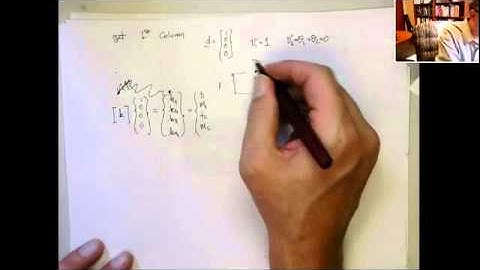 get 1st Column d = { 1 0 0 0 } v₁ = 1 v₂ = θ₁ = θ₂ = 0
[k] { 1 0 0 0 } = { k₁₁ k₂₁ k₃₁ k₄₁ } = { f₁ m₁ f₂ m₂ }
1